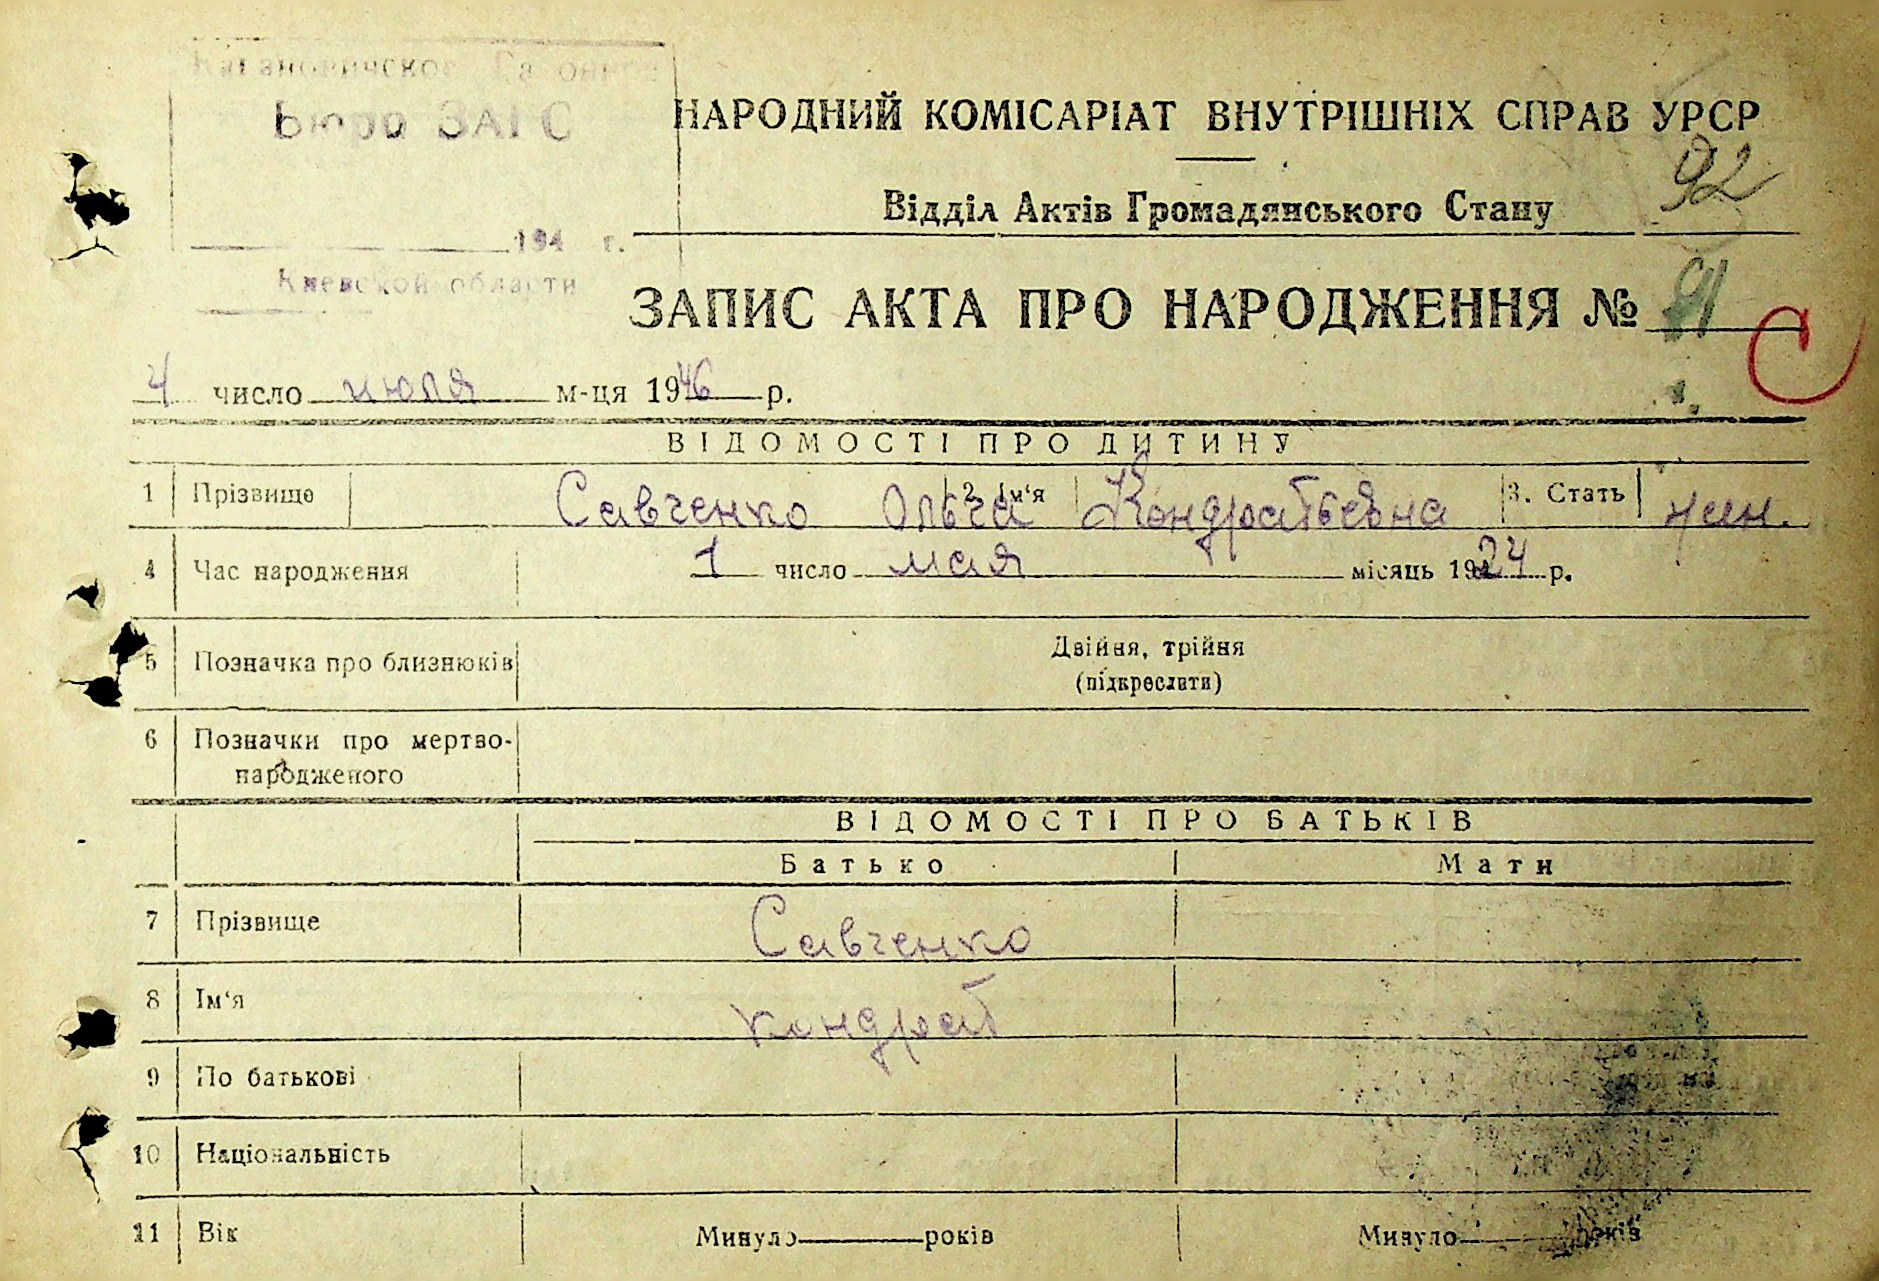 Кагановичское Районное
Бюро ЗАГС
194 г.
Киевской области
НАРОДНИЙ КОМІСАРІАТ ВНУТРІШНІХ СПРАВ УРСР
92
Відділ Актів Громадянського Стану
ЗАПИС АКТА ПРО НАРОДЖЕННЯ № 91
С
4 число июля м-ця 1946 р.
ВІДОМОСТІ ПРО ДИТИНУ
1 Прізвище Савченко 2. Ім‘я Ольга Кондратьевна 3. Стать жен.
4 Час народження 1 число мая місяць 1924 р.
5 Позначка про близнюків Двійня, трійня
(підкреслити)
6 Позначки про мертво-
народженого
ВІДОМОСТІ ПРО БАТЬКІВ
Батько Мати
7 Прізвище Савченко
8 Ім‘я Кондрат
9 По батькові
10 Національність
11 Вік Минуло років Минуло років